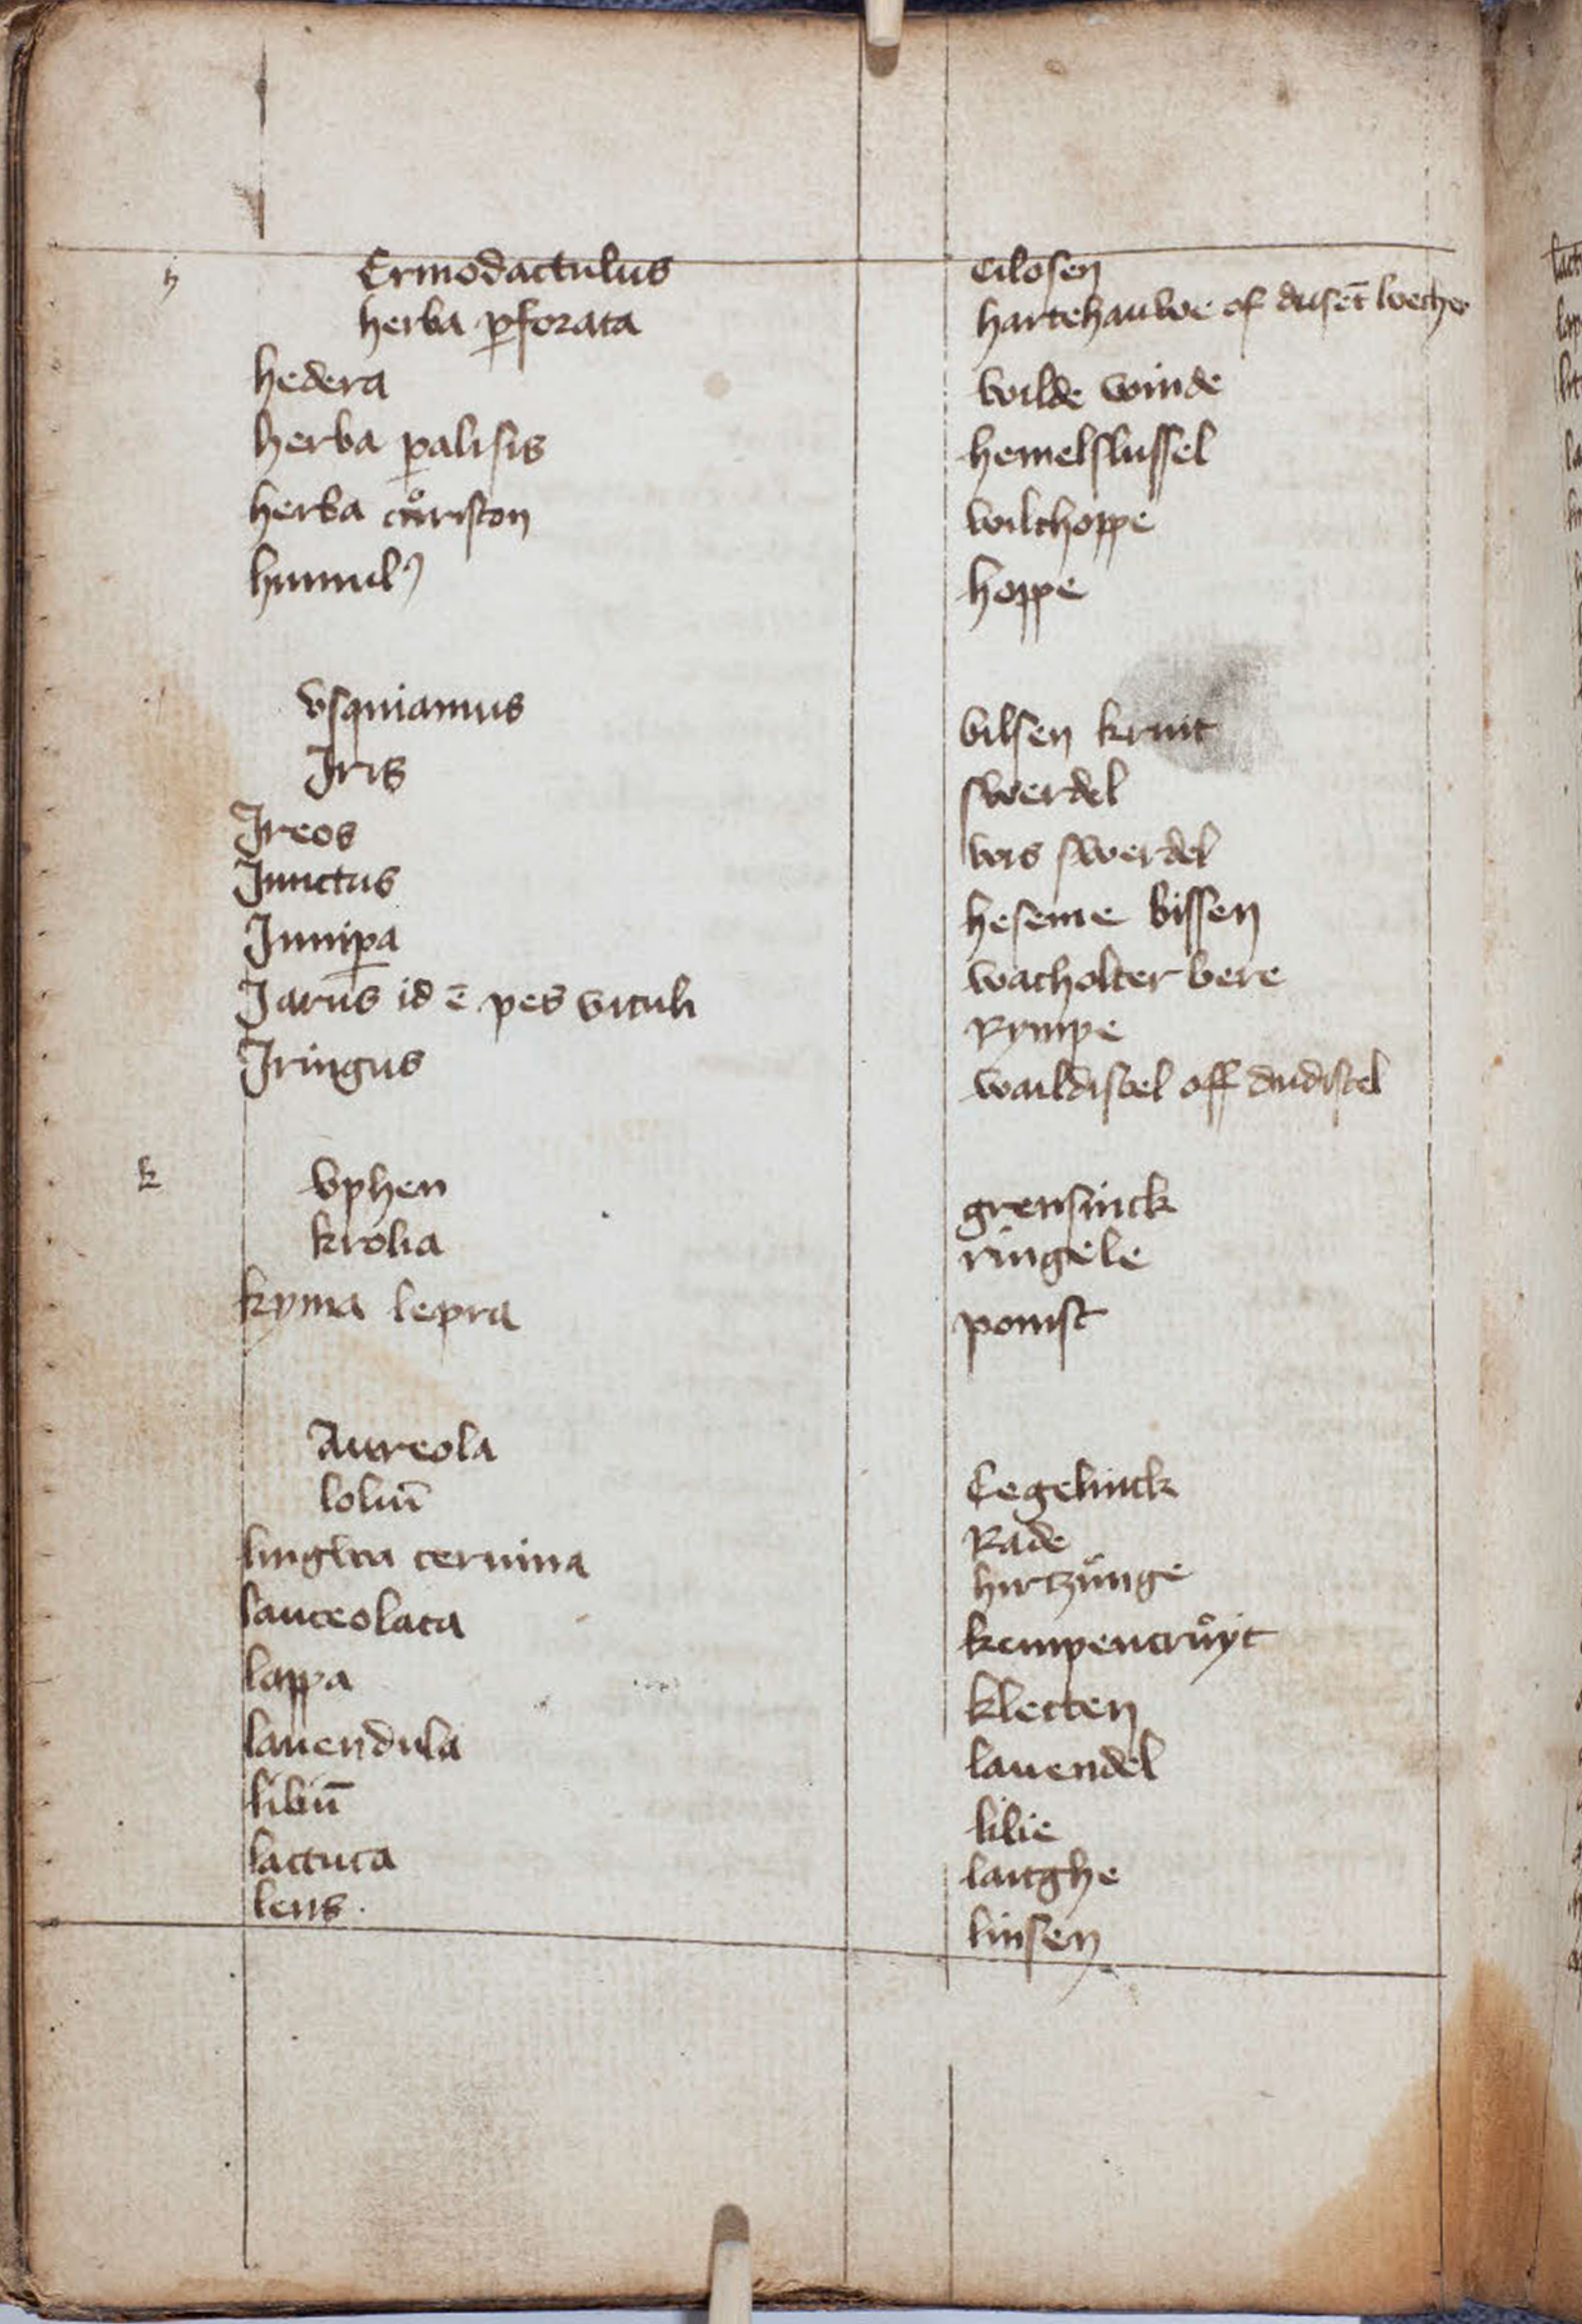 h Ermodactulus cilosen
herba ꝑforata hartehauwe of dusēt loecher
hedera wilde winde
herba ꝑalisis hemelslussel
herba wilthoppe
humulꝰ hoppe
vsqniamus bilsen kruit
Iris swerdel
Ireos wis swerdel
Iunctus heseme bissen
Iuniꝑa wacholter bere
Iarus id ē pes vituli Rympe
Iringus waildistel off dudistel
k vphen grensinck
krolia ringele
kyma lepra ponist
Aureola Cegelinck
loliū Rade
lingwa ceruina hirtzůnge
lanceolata kempencrůyt
lappa kletten
lauendula lauendel
liliū lilie
lactuca laitghe
lens. linsen